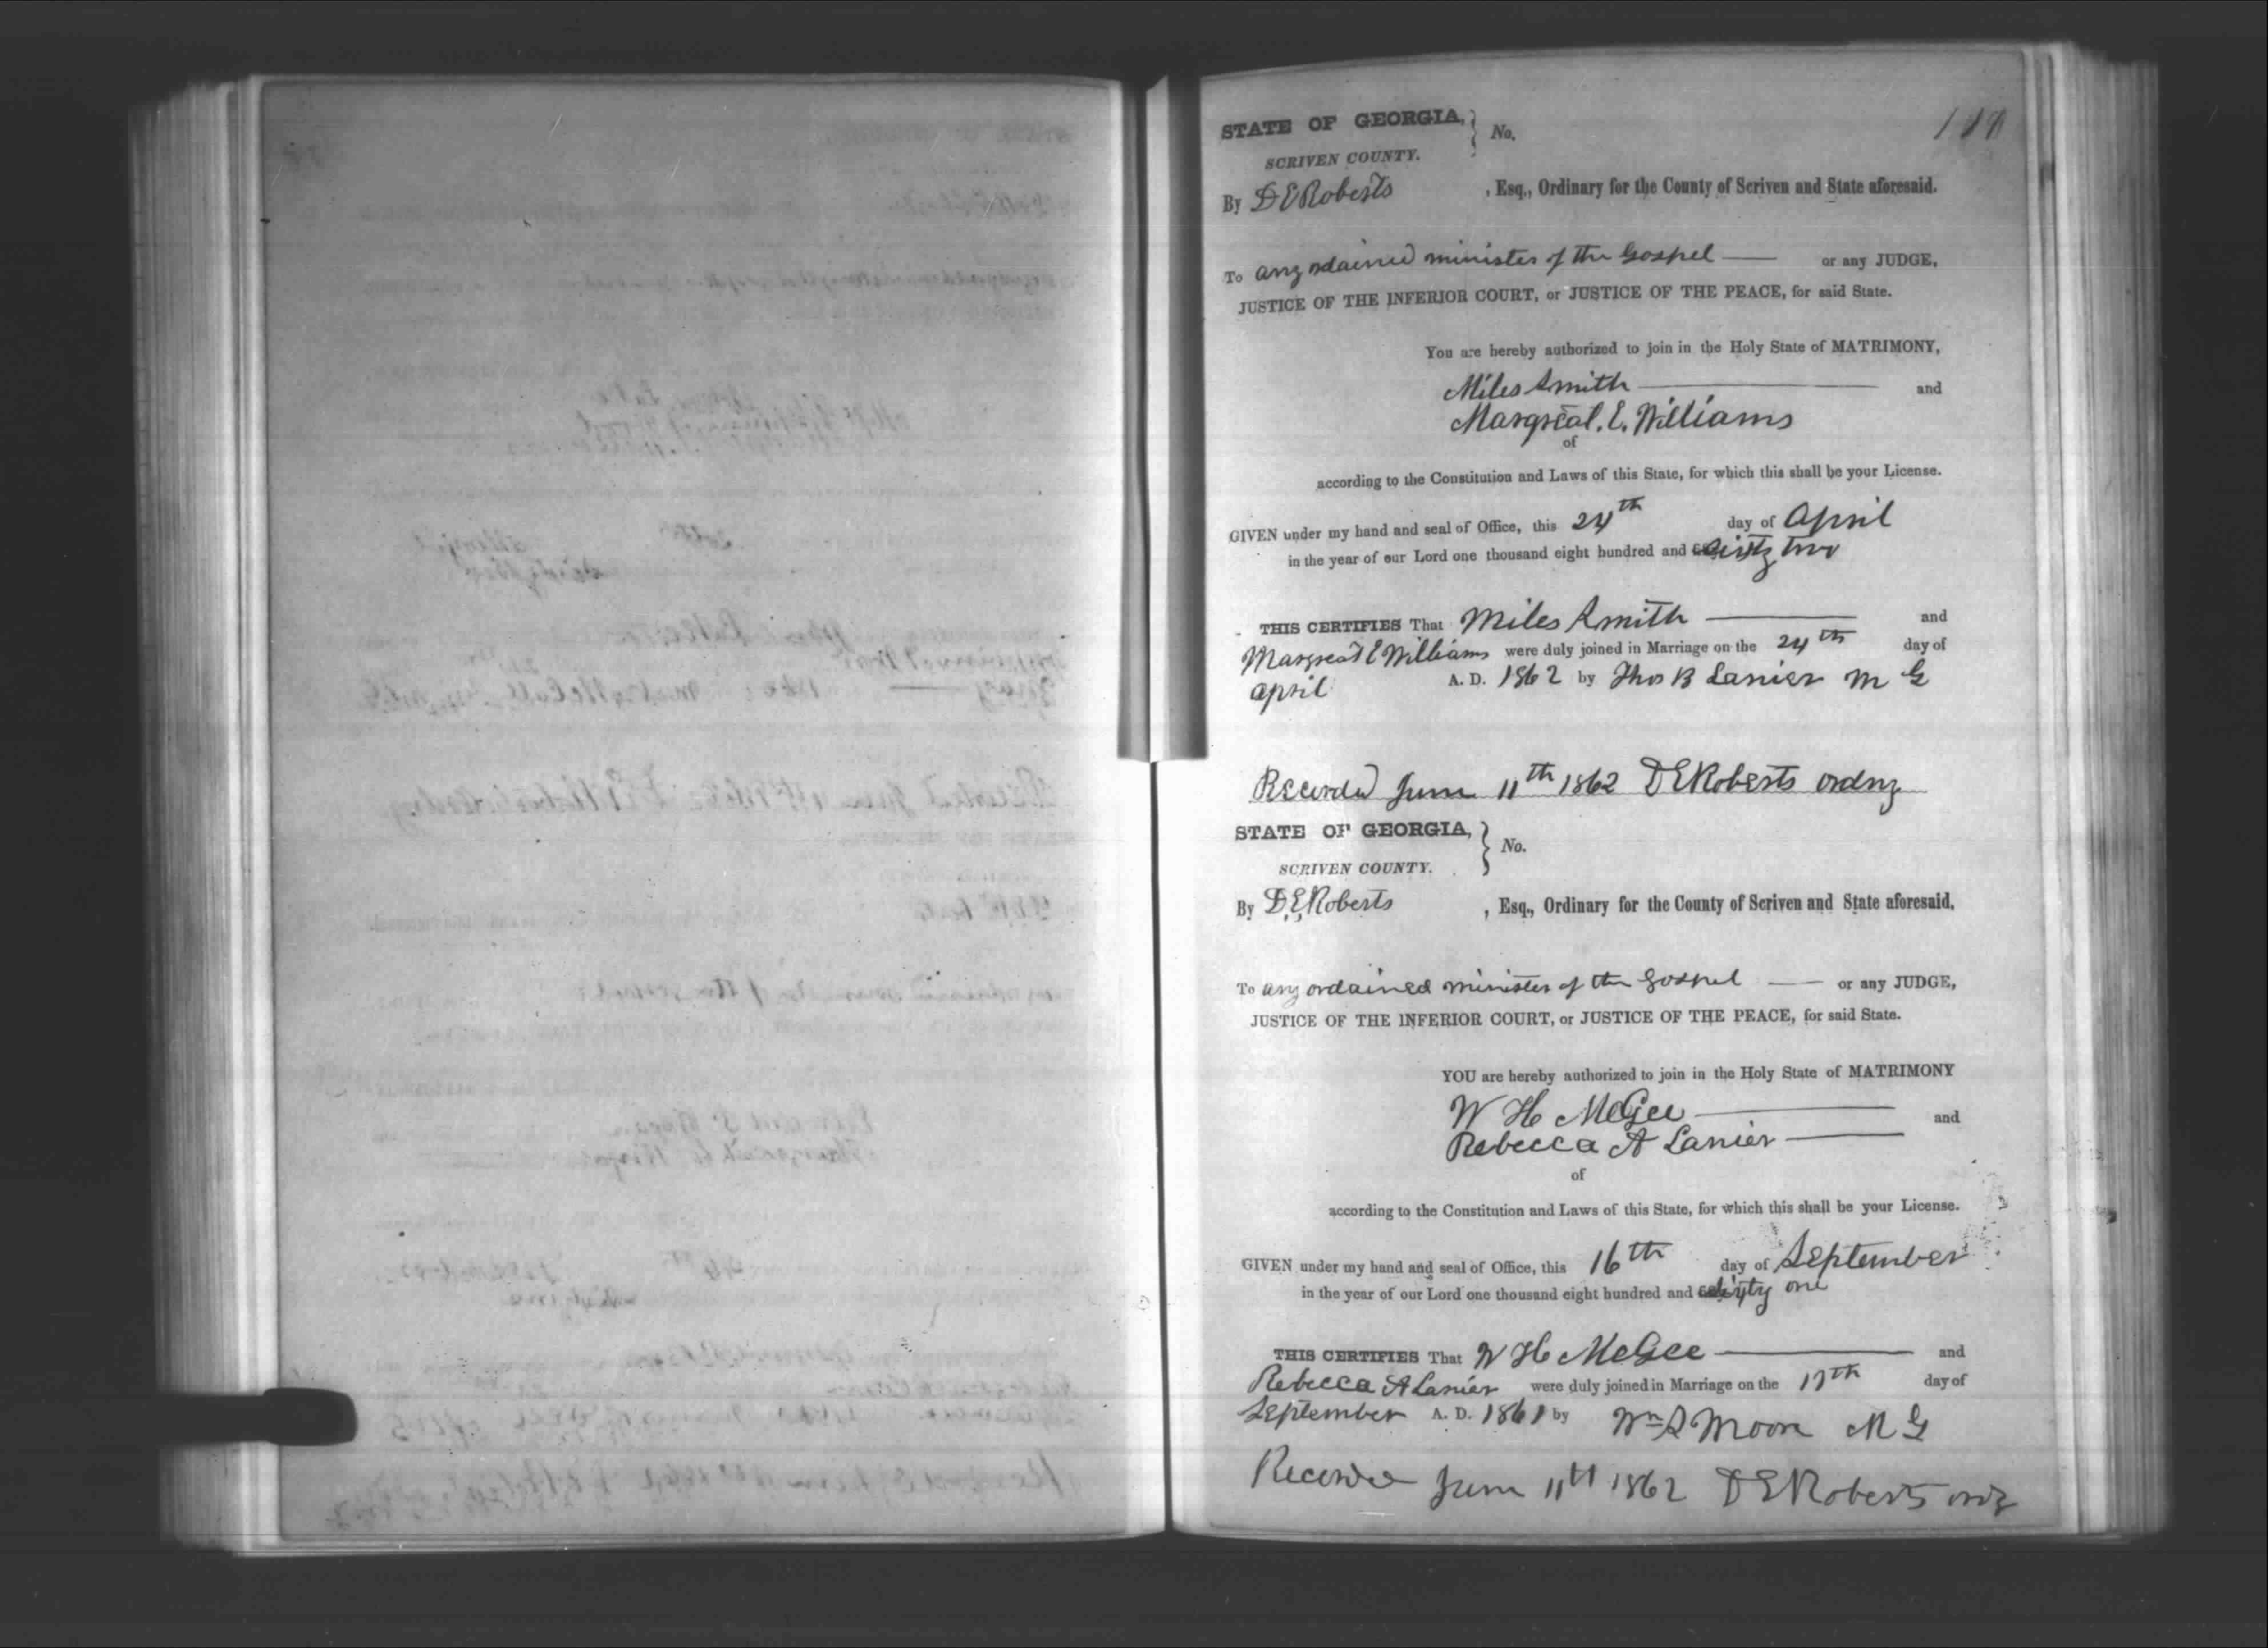 STATE OF GEORGIA, } No.
SCRIVEN COUNTY.
By D E Roberts , Esq., Ordinary for the County of Scriven and State aforesaid.
To any ordained minister of the Gospel — or any JUDGE,
JUSTICE OF THE INFERIOR COURT, or JUSTICE OF THE PEACE, for said State.
You are hereby authorized to join in the Holy State of MATRIMONY,
Miles Smith — and
Margreat. E. Williams
of
according to the Constitution and Laws of this State, for which this shall be your License.
GIVEN under my hand and seal of Office, this 24th day of April
in the year of our Lord one thousand eight hundred and sixty two
THIS CERTIFIES That Miles Smith — and
Margreat E Williams were duly joined in Marriage on the 24th day of
April A. D. 1862 by Thos B Lanier M G
Recorded June 11th 1862 D E Roberts ordny
STATE OF GEORGIA, } No.
SCRIVEN COUNTY.
By D. E. Roberts , Esq., Ordinary for the County of Scriven and State aforesaid.
To any ordained minister of the Gospel — or any JUDGE,
JUSTICE OF THE INFERIOR COURT, or JUSTICE OF THE PEACE, for said State.
YOU are hereby authorized to join in the Holy State of MATRIMONY
W H McGee — and
Rebecca A Lanier —
of
according to the Constitution and Laws of this State, for which this shall be your License.
GIVEN under my hand and seal of Office, this 16th day of September
in the year of our Lord one thousand eight hundred and sixty one
THIS CERTIFIES That W H McGee — and
Rebecca A Lanier were duly joined in Marriage on the 17th day of
September A. D. 1861 by Wm S Moore M G
Recorded June 11th 1862 D E Roberts ordy